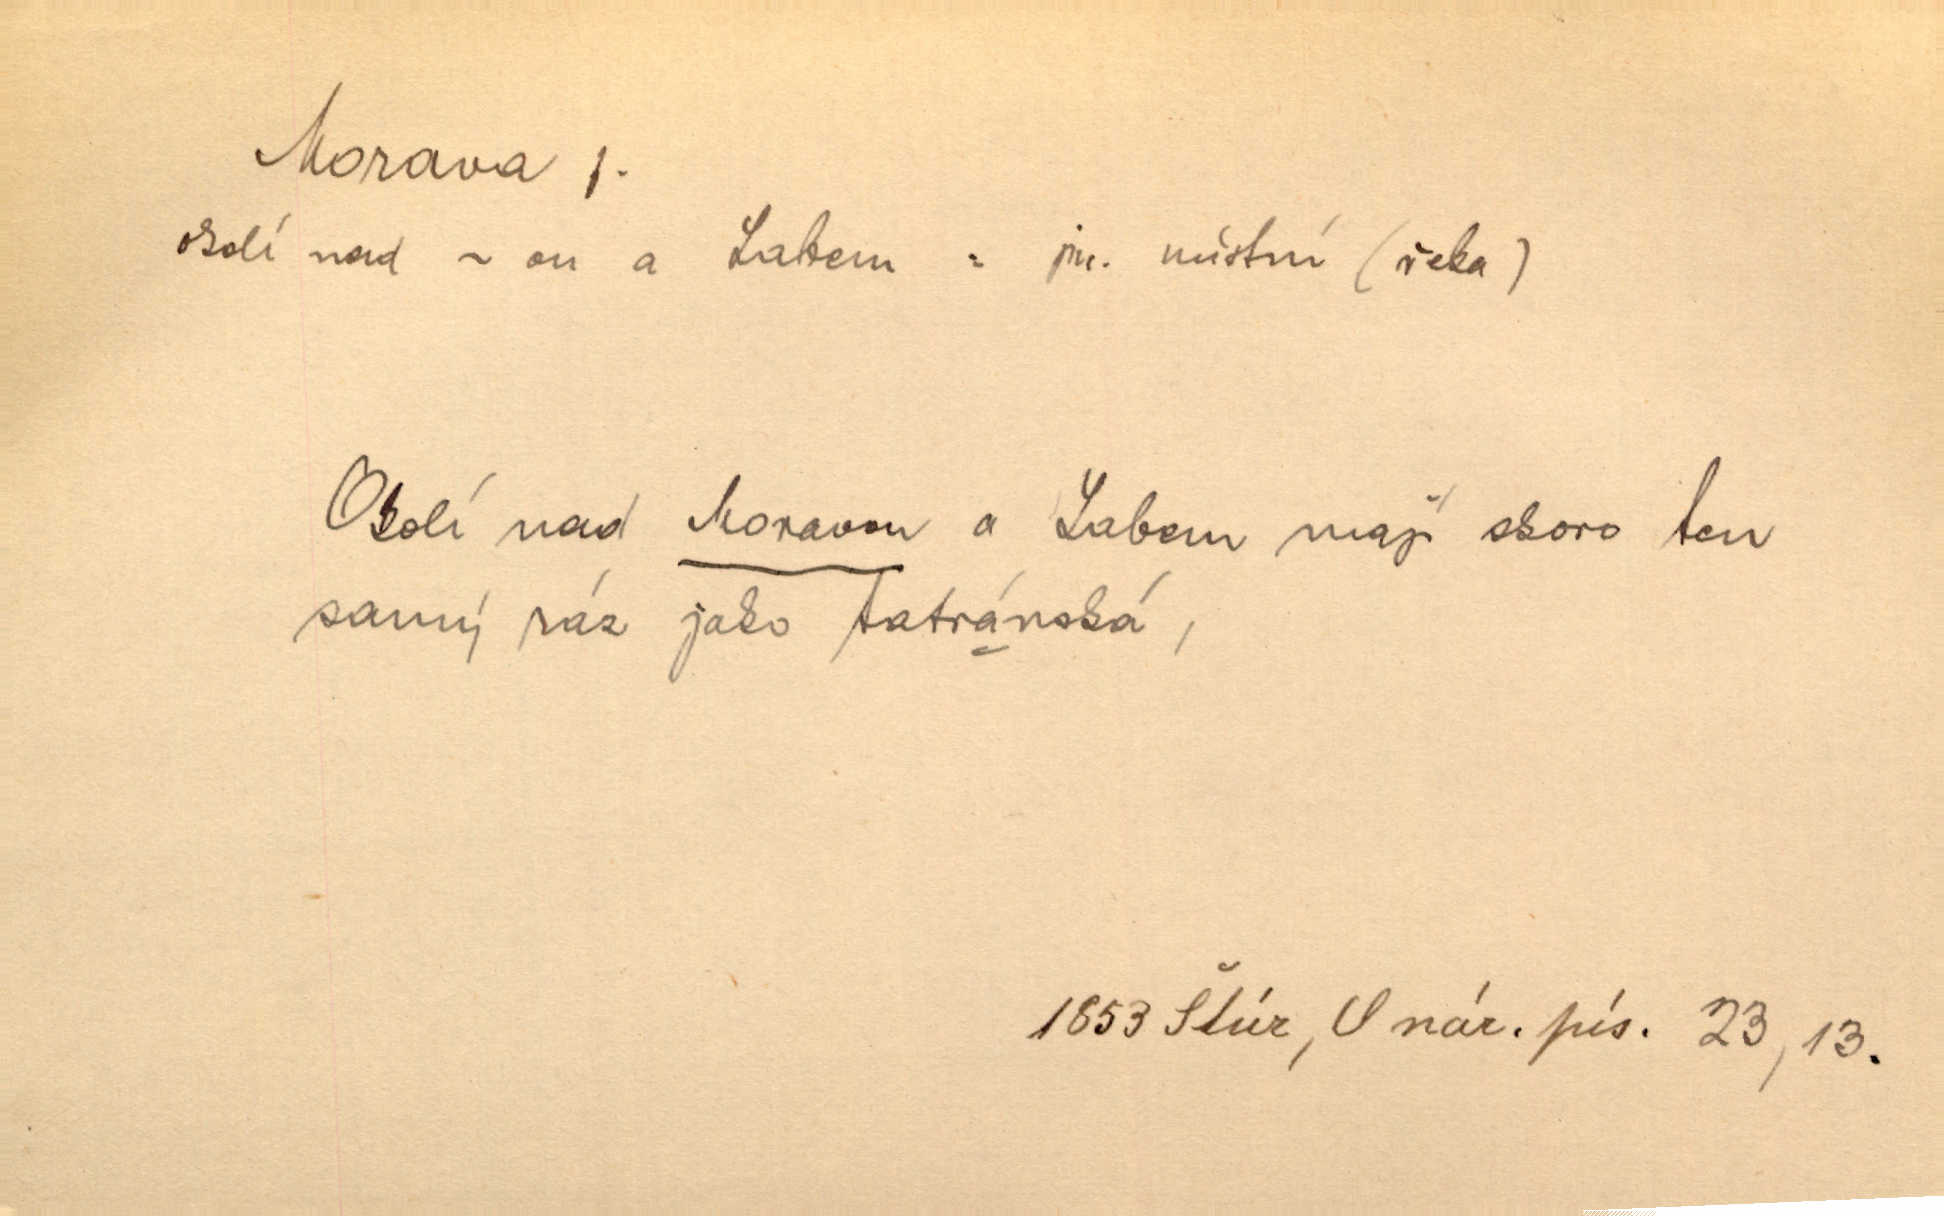 Morava f.
okolí nad ~ ou a Labem = jm. místní (řeka)
Okolí nad Moravou a Labem mají skoro ten
samý ráz jako tatránská,
1853 Štúr, O nár. pís. 23, 13.